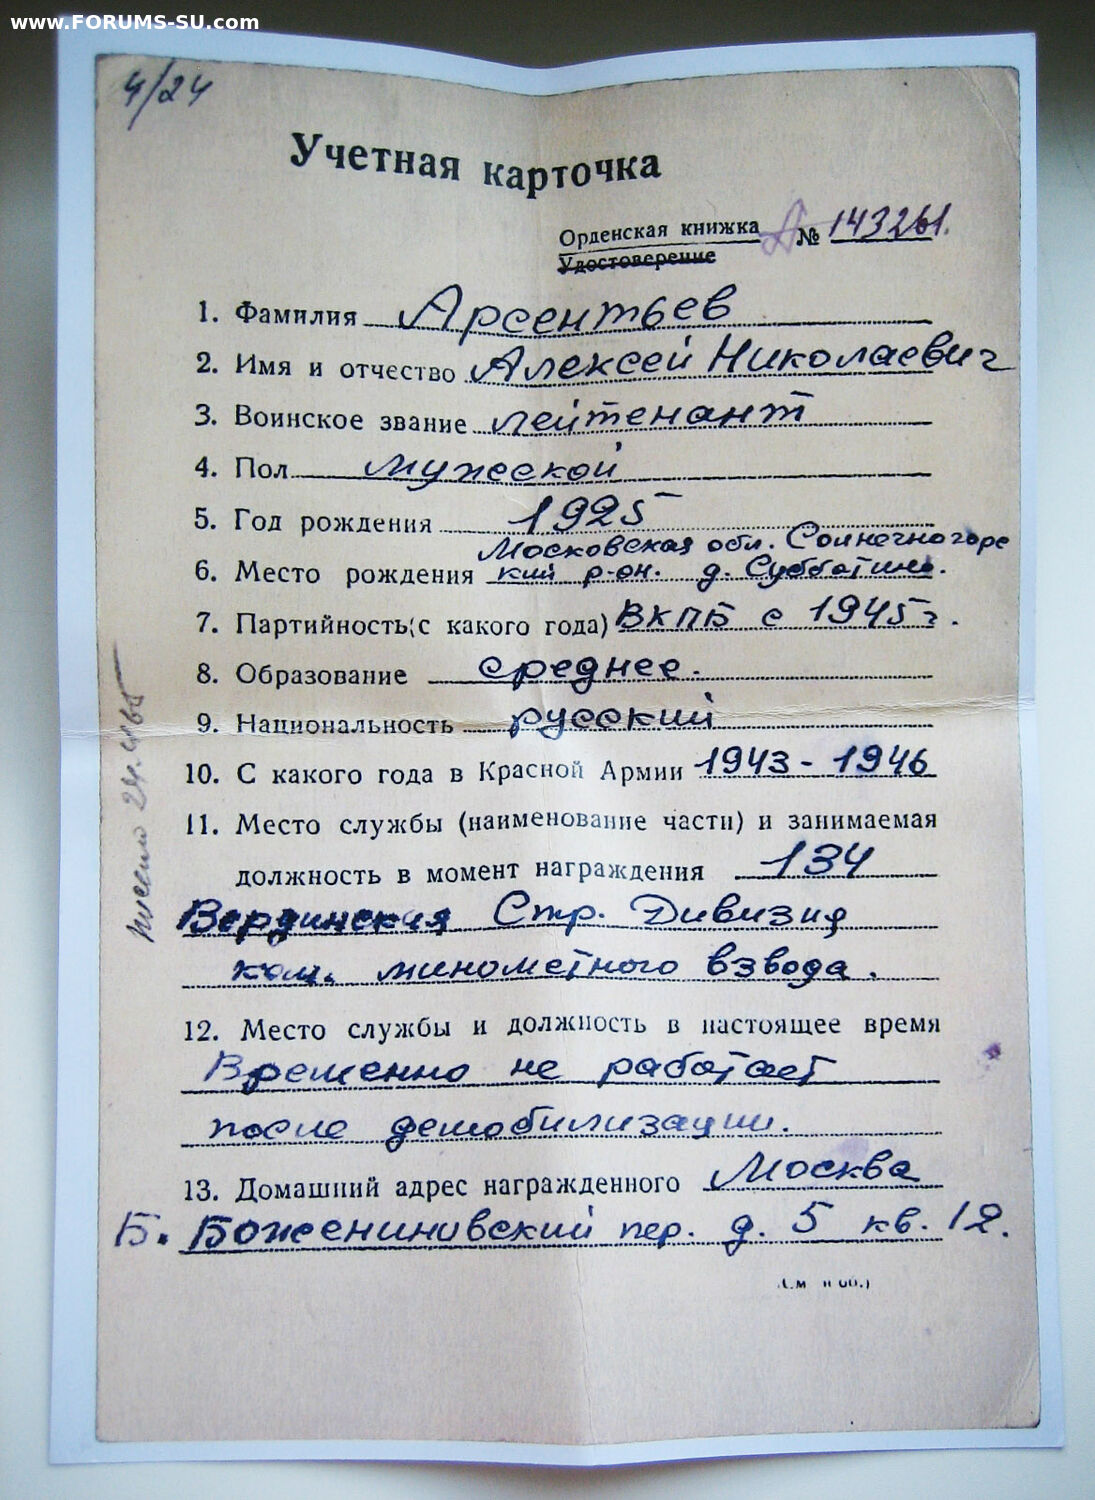 www.FORUMS-SU.com
4/24
Учетная карточка
Орденская книжка А № 143261.
Удостоверение
1. Фамилия Арсентьев
2. Имя и отчество Алексей Николаевич
3. Воинское звание лейтенант
4. Пол мужской
5. Год рождения 1925
Московская обл. Солнечногорс
6. Место рождения кий р-он. д. Субботино.
7. Партийность (с какого года) ВКПБ с 1945 г.
8. Образование среднее.
9. Национальность русский
10. С какого года в Красной Армии 1943 - 1946
11. Место службы (наименование части) и занимаемая
должность в момент награждения 134
Вердинская Стр. Дивизия
ком. минометного взвода.
12. Место службы и должность в настоящее время
Временно не работает
после демобилизации.
13. Домашний адрес награжденного Москва
Б. Божениновский пер. д. 5 кв. 12.